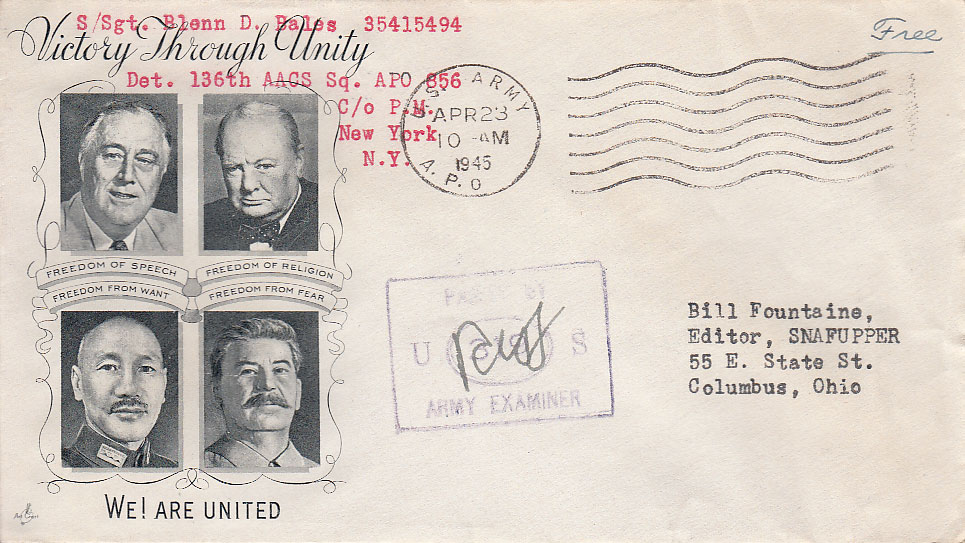 S/Sgt. Blenn D. Bales 35415494
Victory Through Unity
Det. 136th AACS Sq. APO 856
C/o P.M.
New York
N.Y.
U.S. ARMY
APR 23
10 AM
1945
A.P.O
Free
FREEDOM OF SPEECH
FREEDOM OF RELIGION
FREEDOM FROM WANT
FREEDOM FROM FEAR
WE! ARE UNITED
PASSED BY
U S
ARMY EXAMINER
Bill Fountaine,
Editor, SNAFUPPER
55 E. State St.
Columbus, Ohio